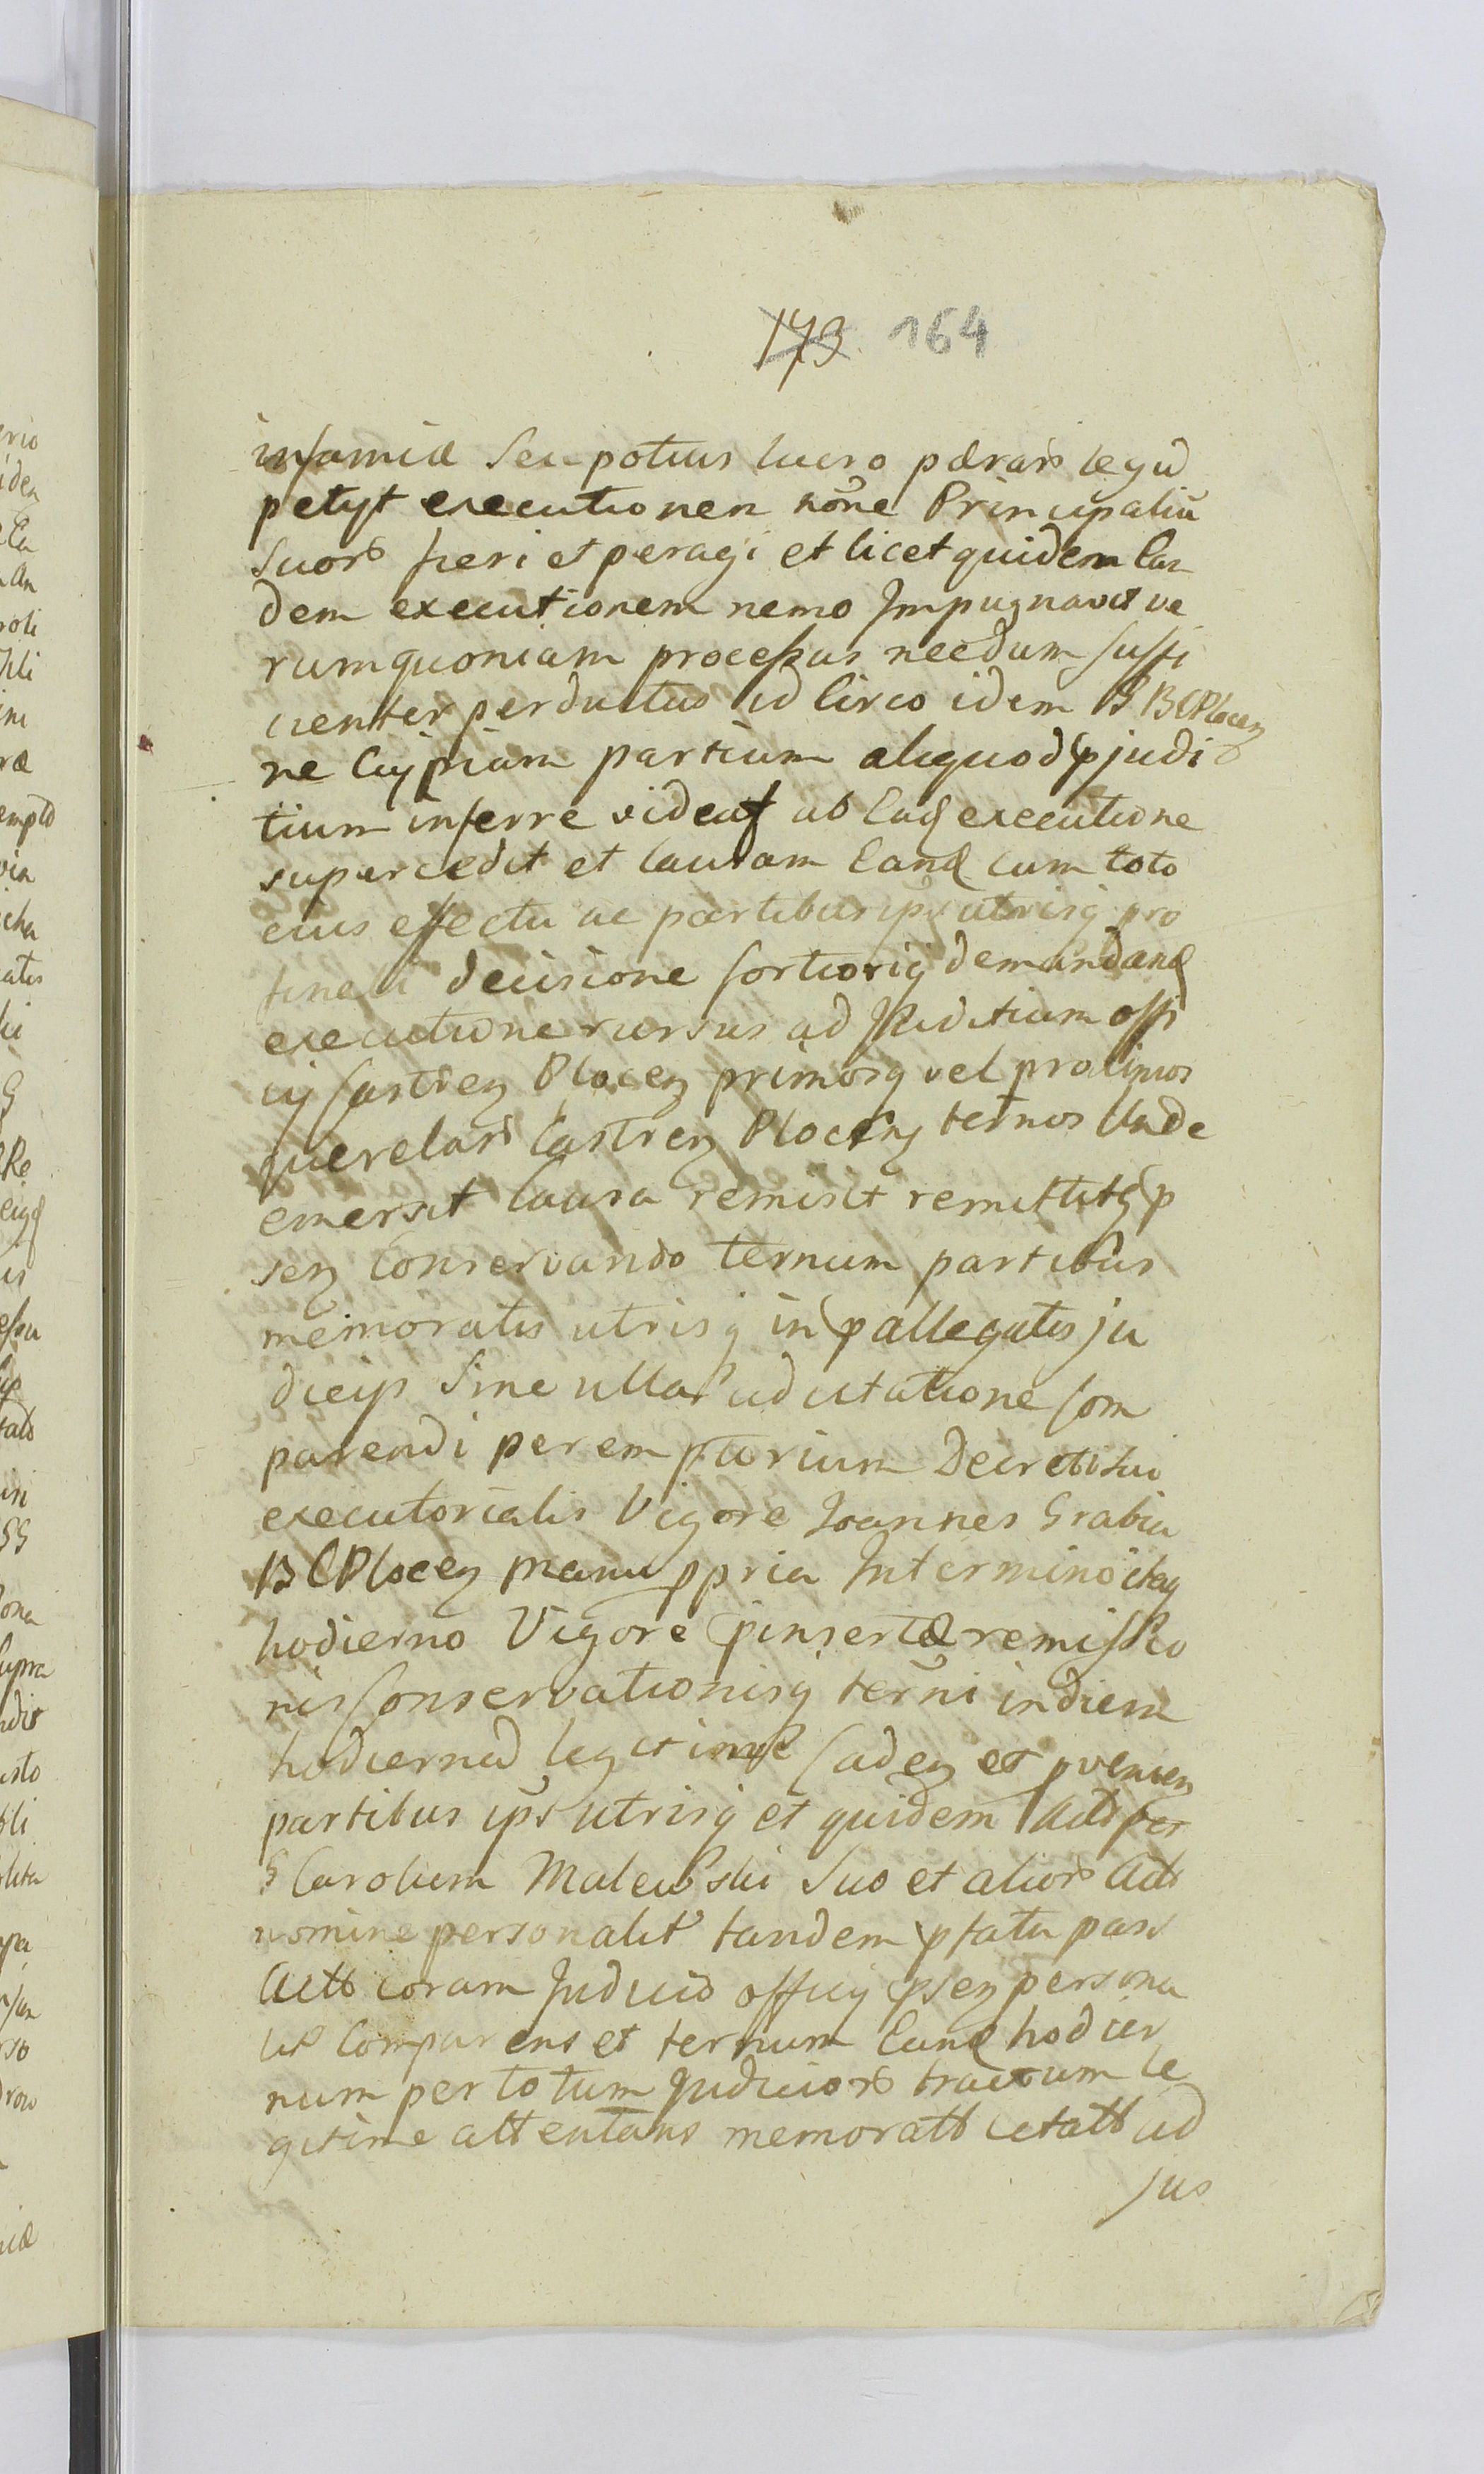 173. 164
infamiæ seu potius lucro pænars legũ
petyt executionem nõne Principaliũ
suors fieri et peragi et licet quidem Ean
dem executionem nemo Impugnavit ve
rum quoniam processus necdum suffi
cienter perductus id Circo idem G B C Plocen
ne Cuipiam partium aliquod pjudi
tium inferre videat ab Eadq executione
supercedit et causam Eand cum toto
eius effectu ac partibus ips utrisq pro
fine a decisione fortioriq demandand
executione rursus ad Juditium offi
cij Castren Plocen primosq vel proximos
querelars Castren Plocen ternos Unde
emersit Causa remisit remittitq p
sen Conservando ternum partibus
memoratis utrisq in pallegatis ju
dicijs Sine ulla adcitatione Com
parendi peremptorium Decreti sui
executorialis Vigore Joannes Grabia
B C Plocen manu ppria In termino itaq
hodierno Vigore pinsertæ remissio
nis Conservationisq terni in diem
hodiernũ legitime Caden et pvenien
partibus ips utrisq et quidem Actt per
G Carolum Malewski suo et aliors Actt
nomine personalit tandem pfata pars
Actt coram Judicio officij psen persona
lit Comparens et ternum Eund hodier
num per totum Judiciors tractum le
gitime attentans memoratt citatt ad
jus